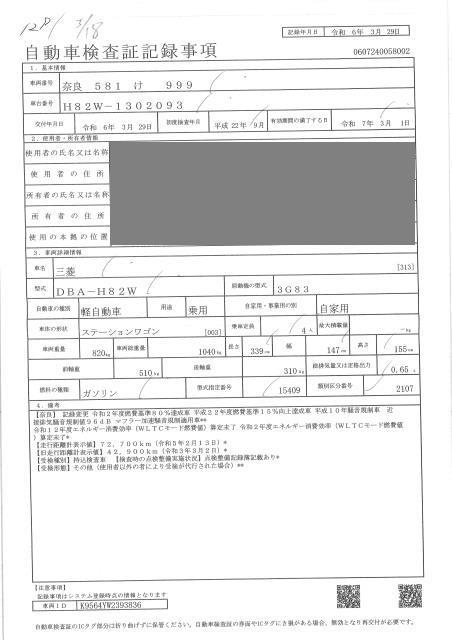 3/18
記録年月日 令和 6年 3月 29日
自動車検査証記録事項
0607240058002
1. 基本情報
車両番号 奈良 581 け 999
車台番号 H82W-1302093
交付年月日 令和 6年 3月 29日 初度検査年月 平成 22年 9月 有効期間の満了する日 令和 7年 3月 1日
2. 使用者・所有者情報
使用者の氏名又は名称
使用者の住所
所有者の氏名又は名称
所有者の住所
使用の本拠の位置
3. 車両詳細情報
車名 三菱 [313]
型式 DBA-H82W 原動機の型式 3G83
自動車の種別 軽自動車 用途 乗用 自家用・事業用の別 自家用
車体の形状 ステーションワゴン [003] 乗車定員 4人 最大積載量 -kg
車両重量 820kg 車両総重量 1040kg 長さ 339cm 幅 147cm 高さ 155cm
前軸重 510kg 後軸重 310kg 総排気量又は定格出力 0.65 L
燃料の種類 ガソリン 型式指定番号 15409 類別区分番号 2107
4. 備考
【奈良】 記録変更 令和2年度燃費基準80%達成車 平成22年度燃費基準15%向上達成車 平成10年騒音規制車 近
接排気騒音規制値96dB マフラー加速騒音規制適用車**
令和12年度エネルギー消費効率(WLTCモード燃費値)算定未了 令和2年度エネルギー消費効率(WLTCモード燃費値
)算定未了*
【走行距離計表示値】72,700km(令和5年2月13日)*
【旧走行距離計表示値】42,900km(令和3年3月2日)*
【受検種別】持込検査車 【検査時の点検整備実施状況】点検整備記録簿記載あり*
【受検形態】その他(使用者以外の者により受検が代行された場合)**
【注意事項】
記録事項はシステム登録時点の情報となります
車両ID K9564YW2393836
自動車検査証のICタグ部分は折り曲げずに保管ください。自動車検査証の券面やICタグにき損がある場合、無効となり再交付が必要です。